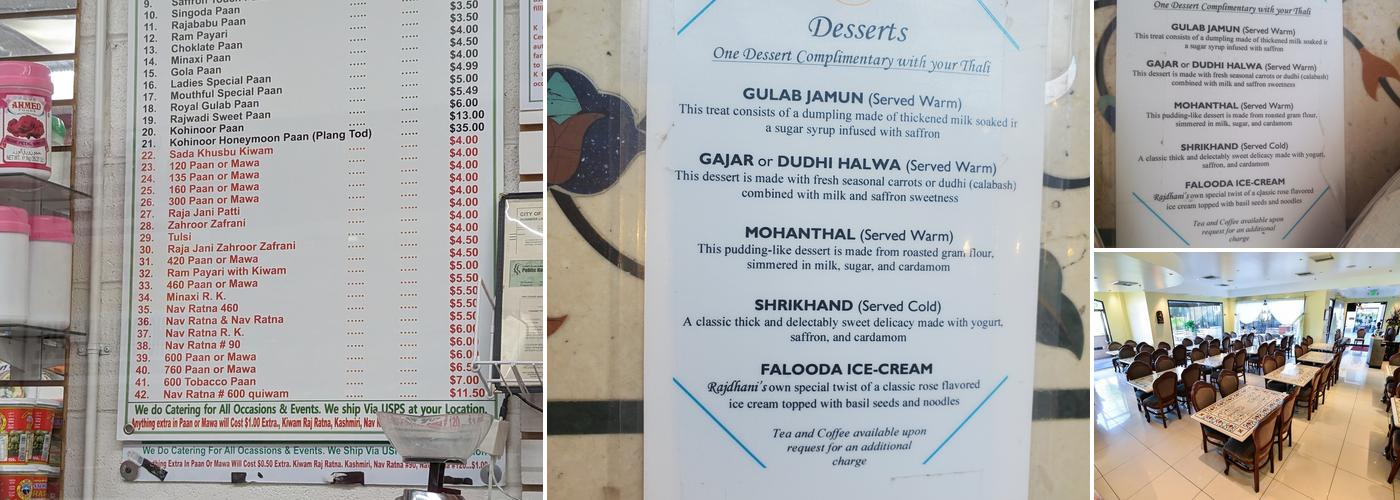 9. Saffron Touch Paan
10. Singoda Paan ..... $3.50
11. Rajababu Paan ..... $3.50
12. Ram Payari ..... $4.00
13. Choklate Paan ..... $4.50
14. Minaxi Paan ..... $4.00
15. Gola Paan ..... $4.99
16. Ladies Special Paan ..... $5.00
17. Mouthful Special Paan ..... $5.49
18. Royal Gulab Paan ..... $6.00
19. Rajwadi Sweet Paan ..... $13.00
20. Kohinoor Paan ..... $35.00
21. Kohinoor Honeymoon Paan (Plang Tod)
22. Sada Khusbu Kiwam ..... $4.00
23. 120 Paan or Mawa ..... $4.00
24. 135 Paan or Mawa ..... $4.00
25. 160 Paan or Mawa ..... $4.00
26. 300 Paan or Mawa ..... $4.00
27. Raja Jani Patti ..... $4.00
28. Zahroor Zafrani ..... $4.00
29. Tulsi ..... $4.00
30. Raja Jani Zahroor Zafrani ..... $4.50
31. 420 Paan or Mawa ..... $4.50
32. Ram Payari with Kiwam ..... $5.50
33. 460 Paan or Mawa ..... $5.50
34. Minaxi R. K. ..... $5.50
35. Nav Ratna 460 ..... $5.50
36. Nav Ratna & Nav Ratna ..... $5.50
37. Nav Ratna R. K. ..... $6.00
38. Nav Ratna # 90 ..... $6.0
39. 600 Paan or Mawa ..... $6.0
40. 760 Paan or Mawa ..... $6.0
41. 600 Tobacco Paan ..... $7.00
42. Nav Ratna # 600 quiwam ..... $11.50
We do Catering for All Occasions & Events. We ship Via USPS at your Location.
Anything extra in Paan or Mawa will Cost $1.00 Extra., Kiwam Raj Ratna, Kashmiri, Nav
We Do Catering For All Occasions & Events. We Ship Via
Extra In Paan Or Mawa Will Cost $0.50 Extra. Kiwam Raj Ratna. Kashmiri, Nav
AHMED
CITY OF
Desserts
One Dessert Complimentary with your Thali
GULAB JAMUN (Served Warm)
This treat consists of a dumpling made of thickened milk soaked in
a sugar syrup infused with saffron
GAJAR or DUDHI HALWA (Served Warm)
This dessert is made with fresh seasonal carrots or dudhi (calabash)
combined with milk and saffron sweetness
MOHANTHAL (Served Warm)
This pudding-like dessert is made from roasted gram flour,
simmered in milk, sugar, and cardamom
SHRIKHAND (Served Cold)
A classic thick and delectably sweet delicacy made with yogurt,
saffron, and cardamom
FALOODA ICE-CREAM
Rajdhani's own special twist of a classic rose flavored
ice cream topped with basil seeds and noodles
Tea and Coffee available upon
request for an additional
charge
One Dessert Complimentary with your Thali
GULAB JAMUN (Served Warm)
This treat consists of a dumpling made of thickened milk soaked in
a sugar syrup infused with saffron
GAJAR or DUDHI HALWA (Served Warm)
This dessert is made with fresh seasonal carrots or dudhi (calabash)
combined with milk and saffron sweetness
MOHANTHAL (Served Warm)
This pudding-like dessert is made from roasted gram flour,
simmered in milk, sugar, and cardamom
SHRIKHAND (Served Cold)
A classic thick and delectably sweet delicacy made with yogurt,
saffron, and cardamom
FALOODA ICE-CREAM
Rajdhani's own special twist of a classic rose flavored
ice cream topped with basil seeds and noodles
Tea and Coffee available upon
request for an additional
charge